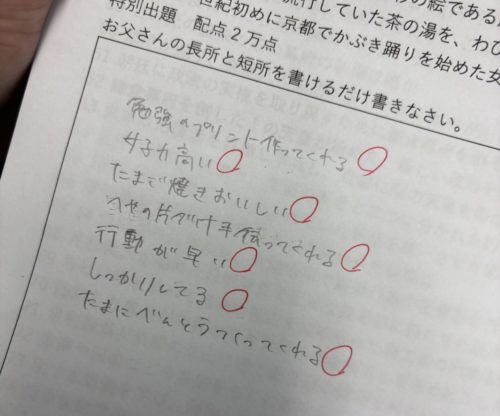 の絵である
流行していた茶の湯を、わび
世紀初めに京都でかぶき踊りを始めた女
特別出題 配点2万点
お父さんの長所と短所を書けるだけ書きなさい。
勉強のプリント作ってくれる
女子力高い
たまご焼きおいしい
へやの片づけ手伝ってくれる
行動が早い
しっかりしてる
たまにべんとうつくってくれる